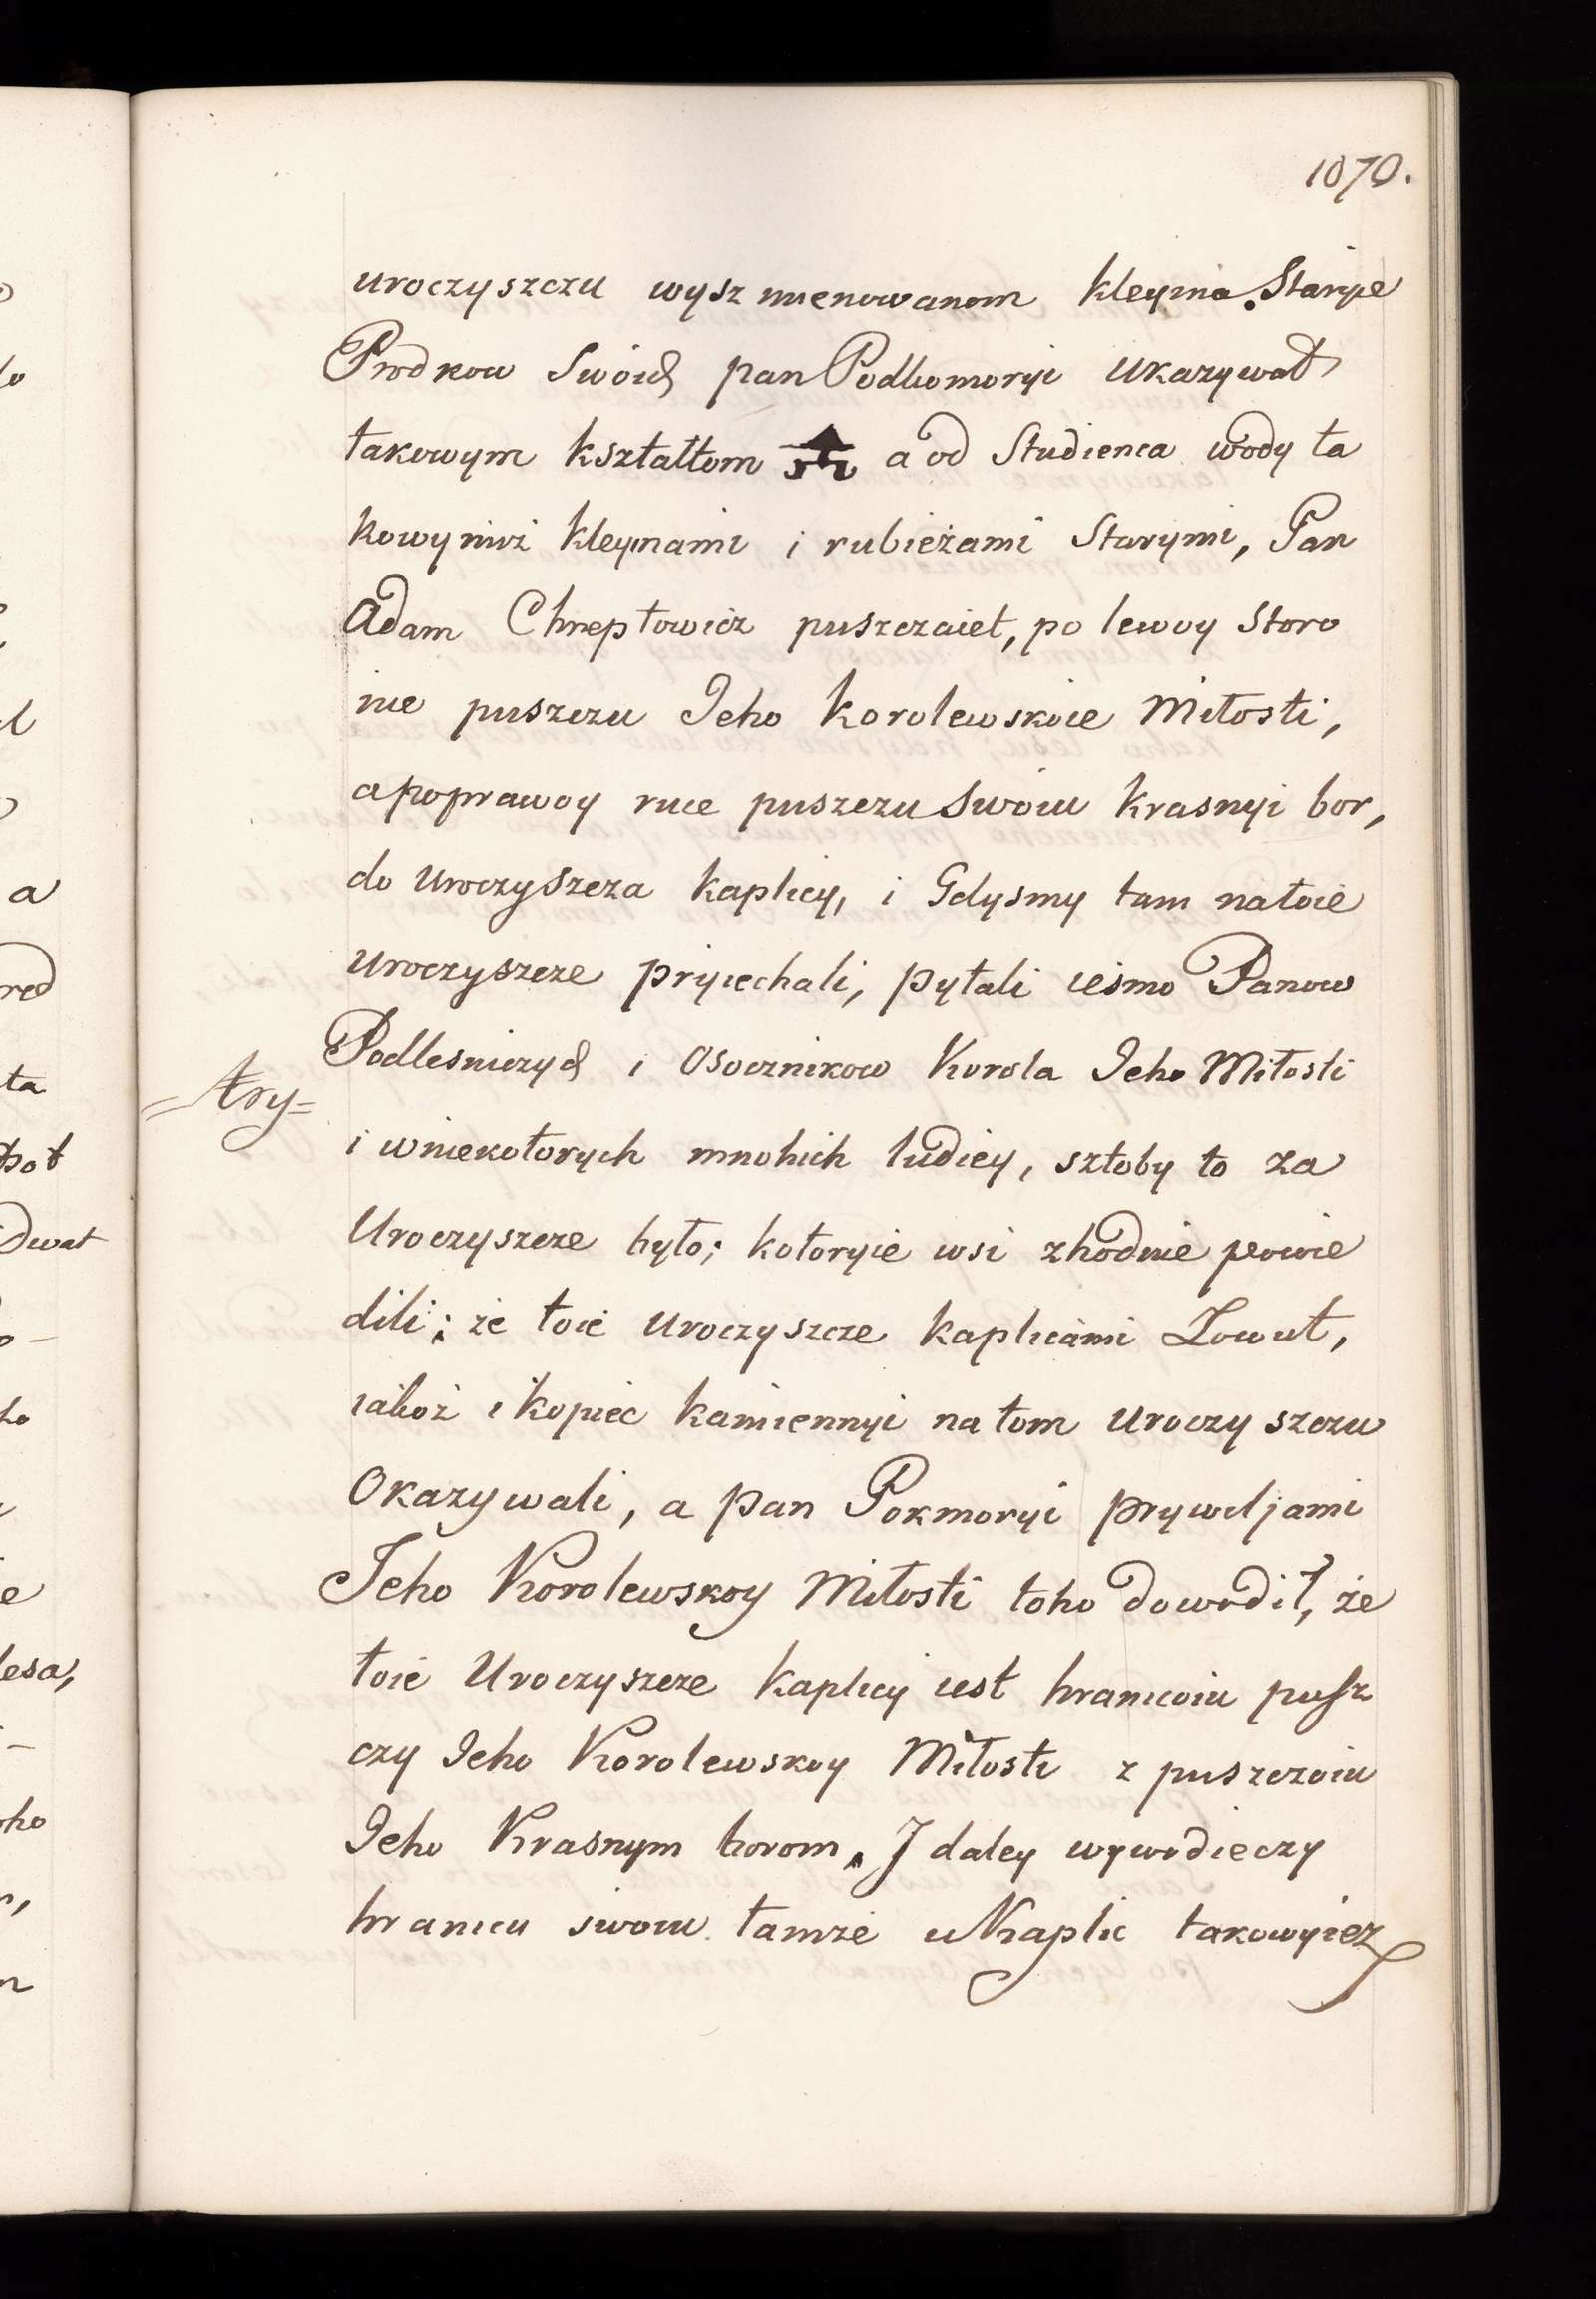 1070.
uroczyszczu wysz mienowanom kleyma Staryie
Prodkow Swoich pan Podkomoryi ukazywał
takowym kształtom a od Studienca wody ta
kowymiż kleymami i rubieżami Starymi, Pan
Adam Chreptowicz puszczaiet, po lewoy storo
nie puszczu Jeho Korolewskoie Miłosti,
a poprawoy ruce puszczu Swoiu Krasnyi bor,
do Uroczyszcza Kaplicy, i Gdysmy tam na toie
Uroczyszcze pryiechali, pytali iesmo Panow
Podlesniczych i Osocznikow Korola Jeho Miłosti
=try=
i w niekotorych mnohich ludiey, sztoby to za
Uroczyszcze było; kotoryie wsi zhodnie powie
dili; że toie uroczyszcze Kaplicami Zowut,
iakoż i kopiec kamiennyi na tom uroczyszczu
Okazywali, a pan Pokmoryi prywiljami
Jeho Korolewskoy Miłosti toho dowodił, że
toie Uroczyszcze Kaplicy iest hranicoiu pusz
czy Jeho Korolewskoy Miłosti z puszczoiu
Jeho Krasnym borom. I daley wywodieczy
hranicu swoiu tamże u Kaplic takowyież
a
red
ta
dwat
lesa,